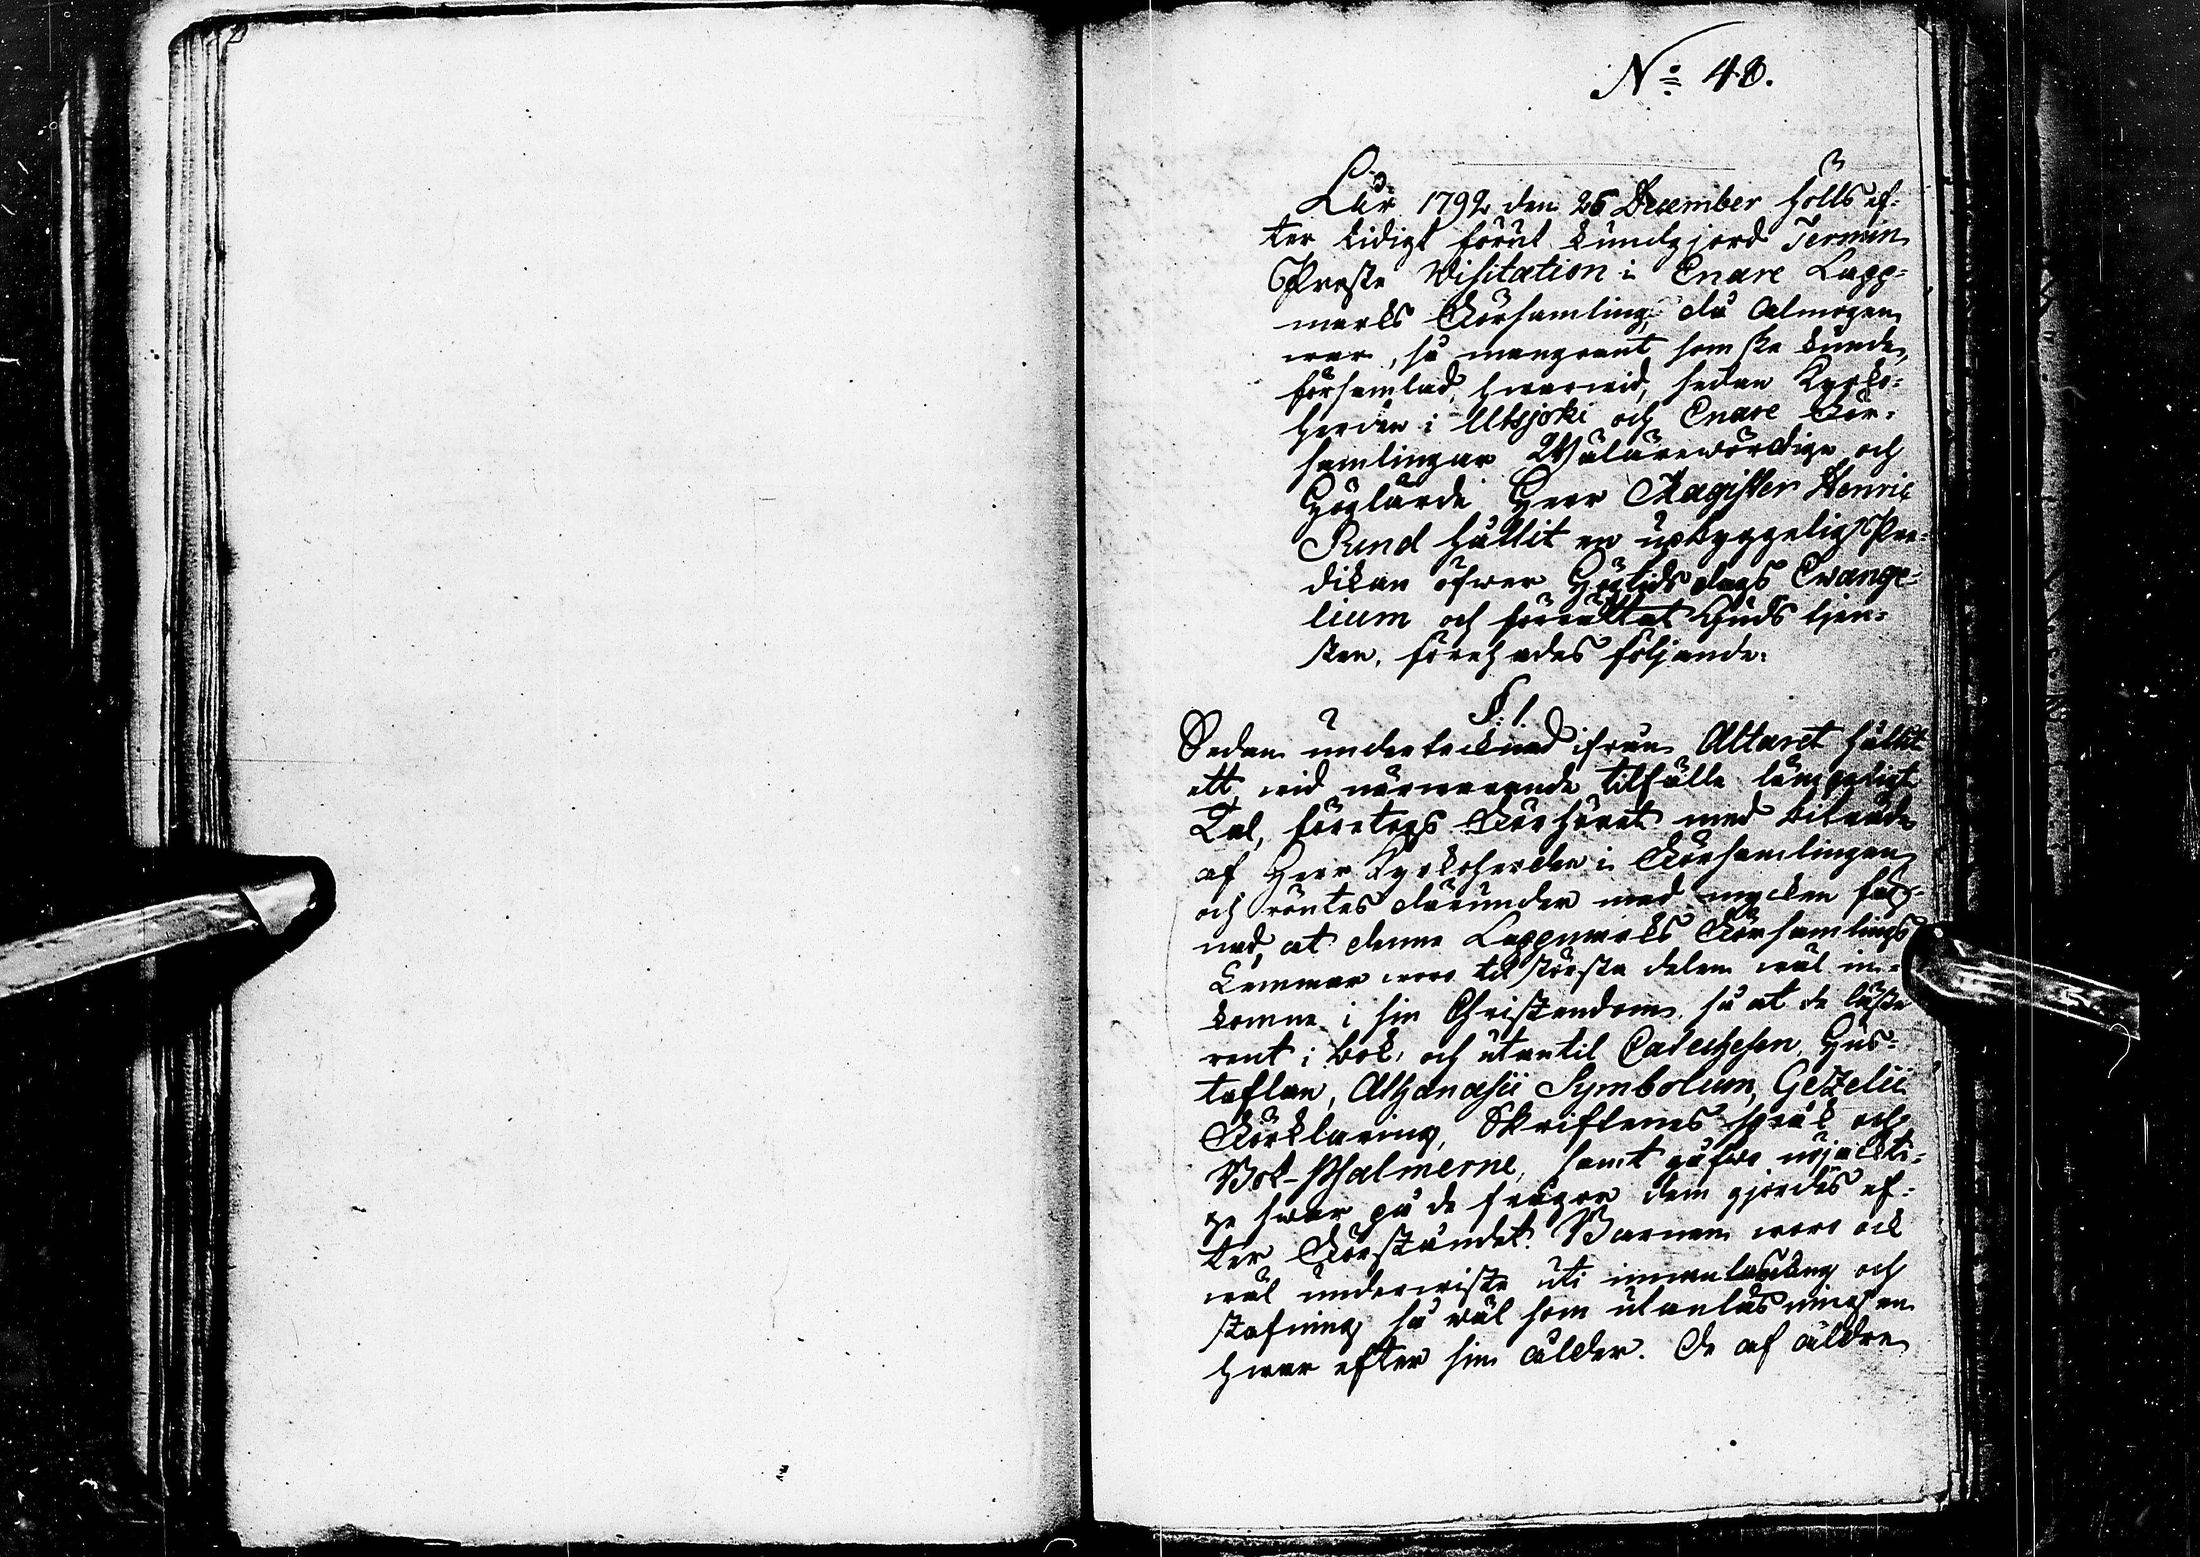 No 48.
År 1792 den 26 December hölls ef-
ter tidigt förut kundgjord Termin
Prosts Visitation i Enare Lapp-
marks Församling, då Almogen
war, så mangrant som ske kunde,
församlad, hwarwid, sedan Kyrko-
herden i Utsjoki och Enare För-
samlingar Wälärewördige och
Höglärde Herr Magister Henric
Sund hållit en upbyggelig Pre-
dikan öfwer Högtidsdags Evange-
lium och förrättat Gudstjen-
sten, förehades följande:
§. 1.
Sedan undertecknad ifrån Altaret hållit
ett wid närwarande tilfälle lämpeligt
Tal, företogs Förhöret med biträde
af Herr Kyrkoherden i Församlingen
och röntes därunder med mycken fäg-
nad, at denne Lappmarks Församlings
Lemmar woro til största delen wäl in-
komne i sin Christendom, så at de läste
rent i bok, och utantil Catechesen, Hus-
taflan, Athanasii Symbolum, Gezelii
Förklaring, Skriftenes språk och
Bok-Psalmerne, samt gåfwo nöjakti-
ge swar på de frågor dem gjordes ef-
ter Förståndet. Barnen woro ock
wäl underwiste uti innanläsning och
stafning så wäl som utanläsningen
hwar efter sin ålder. De af äldre